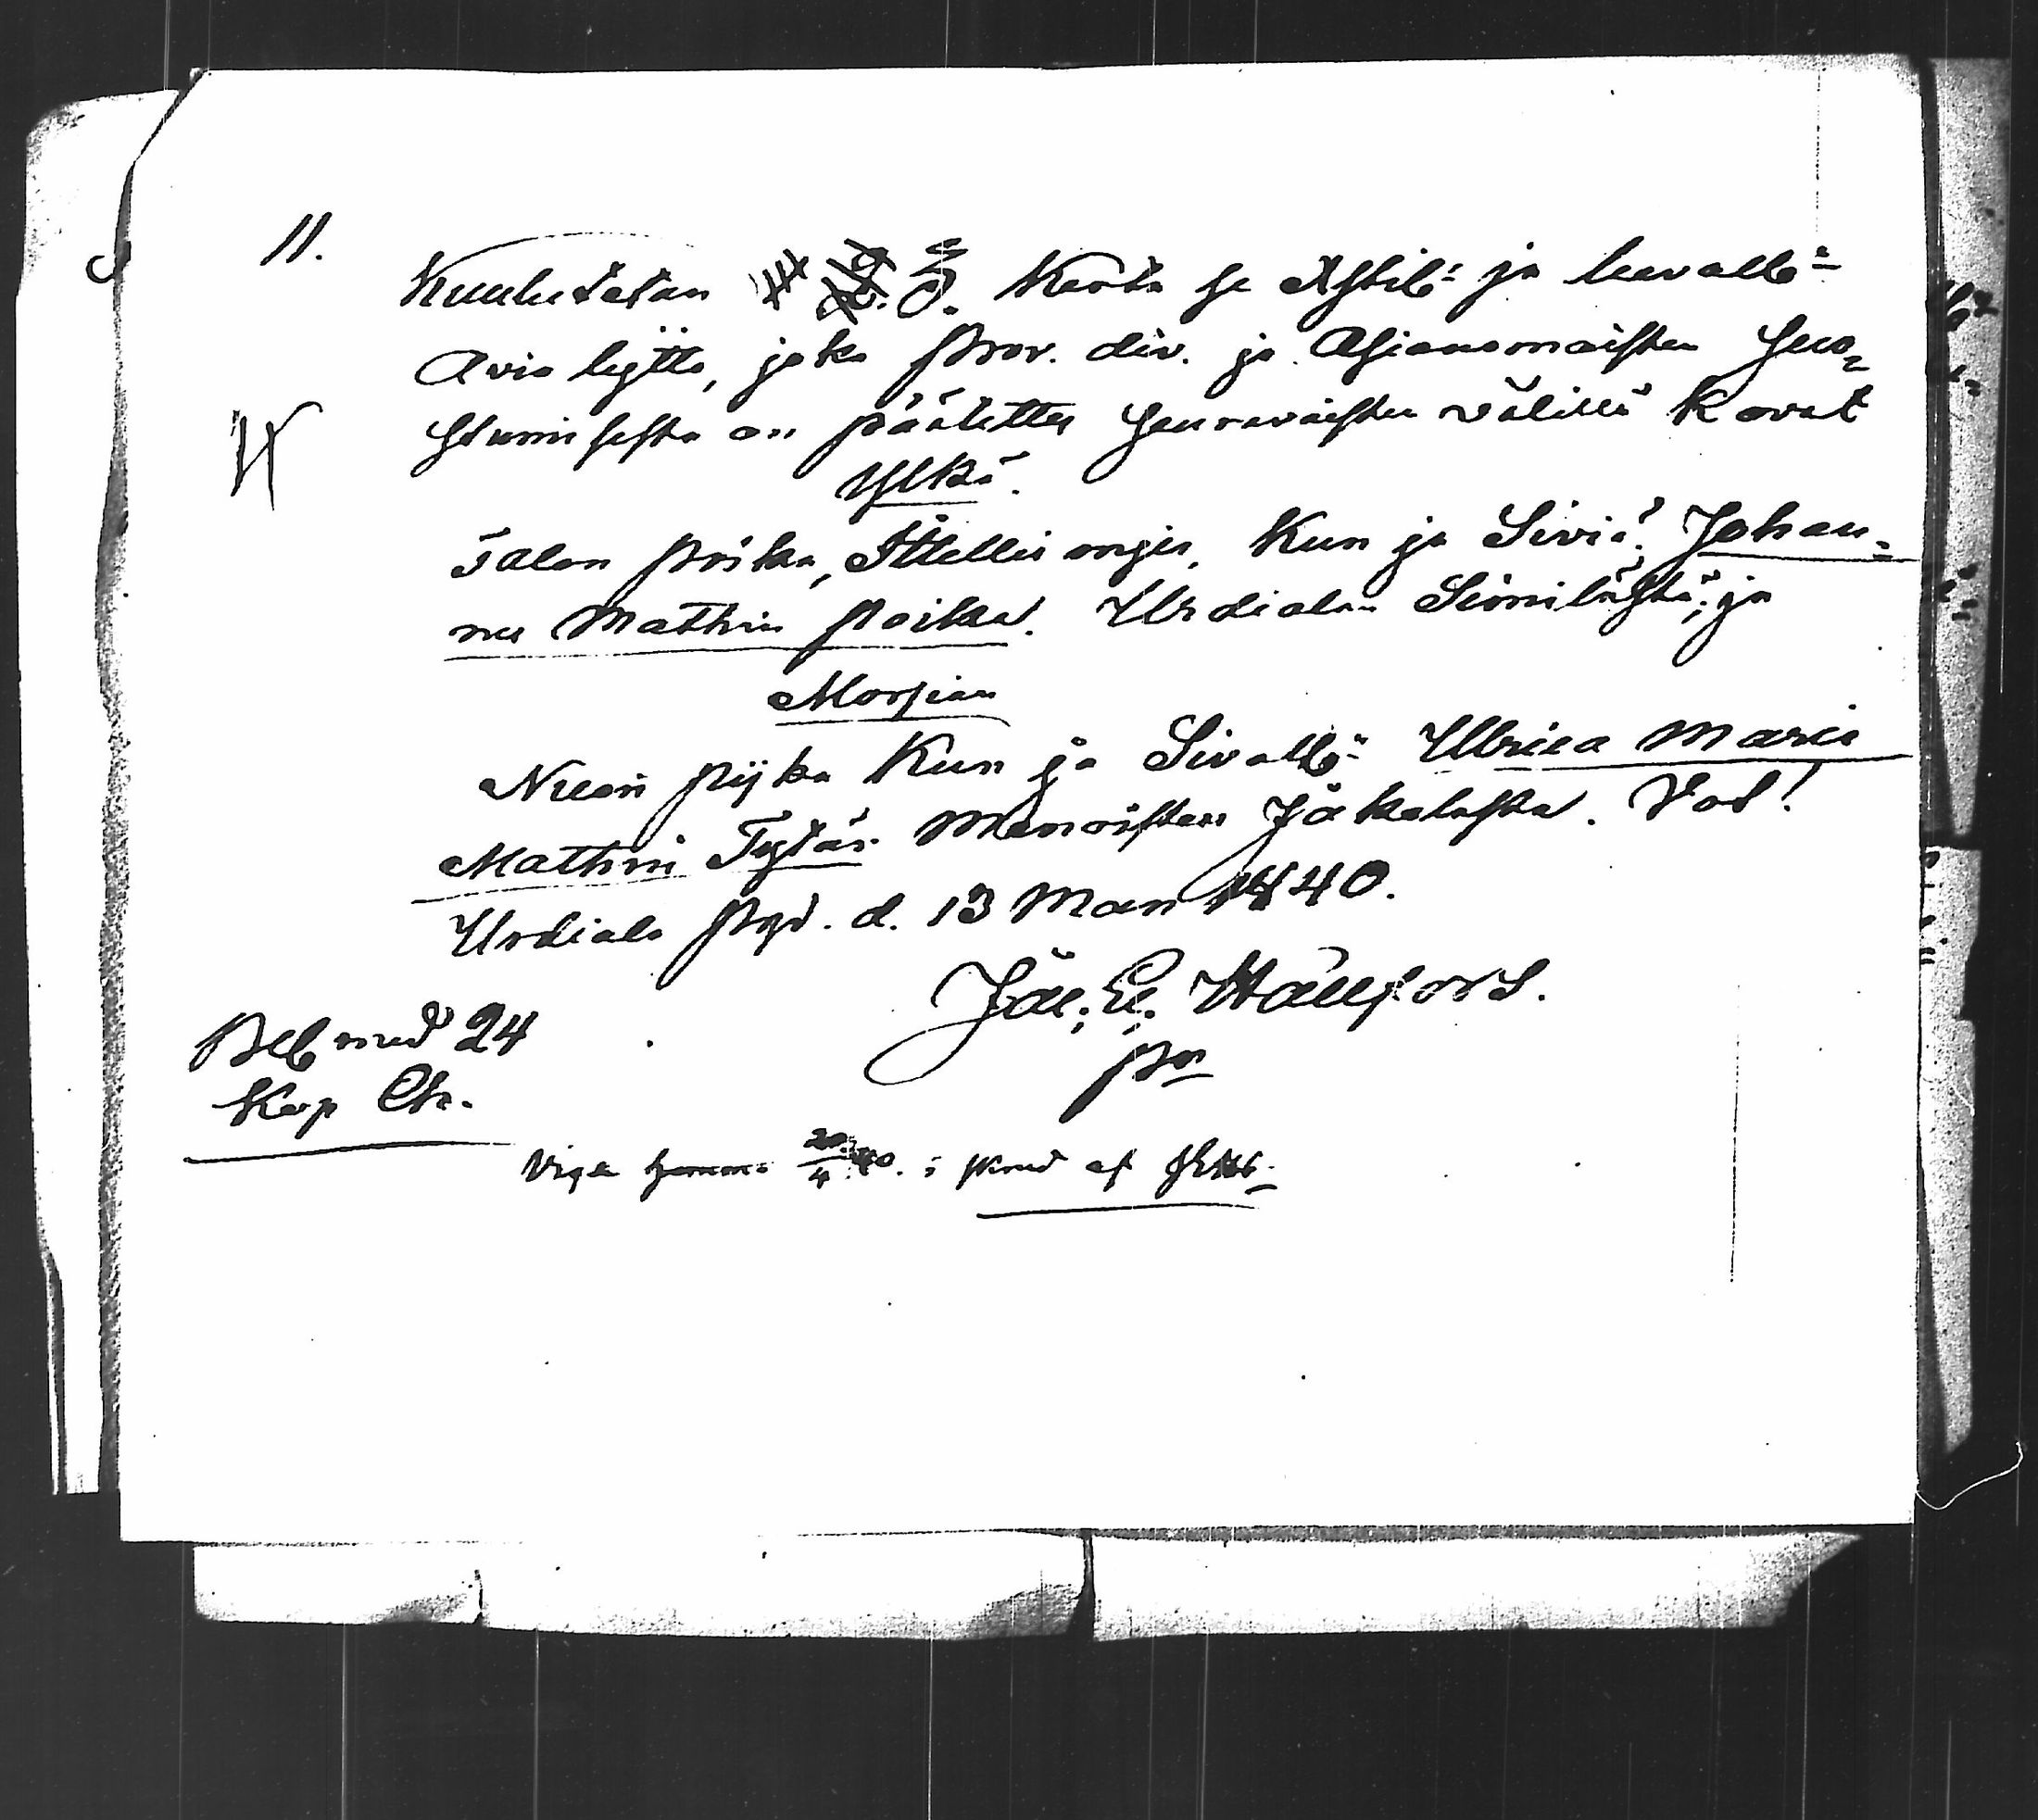 11.
Kuulutetan 3. Kerta se Christil: ja luvall:
Avio liytto, joka prov. div. ja Asianomaisten Suo=
stumisesta on päätetty Seuravaisten välillä kovat
Ylkä.
Talon poika, Itellis mies, Kun ja Siviä: Johan=
nes Mathin poika. Urdialan Seimilästä; ja
Morsian
Nuori pijka Kun ja Sivallb: Ulrica Maria
Mathin Tytär Menoisten Jäkelästä. Vod!
Urdiala prgd. d. 13 Mars 1840.
Joh. E. Hällfors.
pr
Bel med 24
Kop Ch.
Vigde 20/4 40. i af